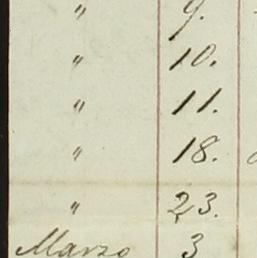 " 9.
" 10.
" 11.
" 18.
" 23.
Marzo 3